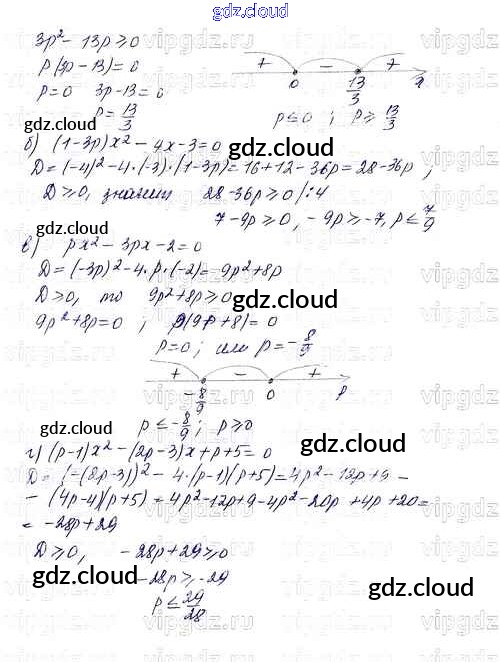 gdz.cloud
3p² - 13p ≥ 0
p(3p - 13) = 0
p = 0 3p - 13 = 0
p = 13/3
+ - +
0 13/3
p ≤ 0 ; p ≥ 13/3
gdz.cloud gdz.cloud
б) (1-3p)x² - 4x - 3 = 0
D = (-4)² - 4·(-3)·(1-3p) = 16 + 12 - 36p = 28 - 36p ;
D ≥ 0, значит 28 - 36p ≥ 0 /:4
7 - 9p ≥ 0, -9p ≥ -7, p ≤ 7/9
gdz.cloud
в) px² - 3px - 2 = 0
D = (-3p)² - 4·p·(-2) = 9p² + 8p
D > 0, то 9p² + 8p ≥ 0
gdz.cloud
9p² + 8p = 0 ; p(9p + 8) = 0
gdz.cloud
p = 0 ; или p = -8/9
+ - +
-8/9 0 p
p ≤ -8/9 ; p ≥ 0
gdz.cloud
г) (p-1)x² - (2p-3)x + p + 5 = 0
gdz.cloud
D = (-(2p-3))² - 4·(p-1)(p+5) = 4p² - 12p + 9 -
- (4p-4)(p+5) = 4p² - 12p + 9 - 4p² - 20p + 4p + 20 =
= -28p + 29
D ≥ 0, -28p + 29 ≥ 0
gdz.cloud gdz.cloud
-28p ≥ -29
p ≤ 29/28
gdz.cloud